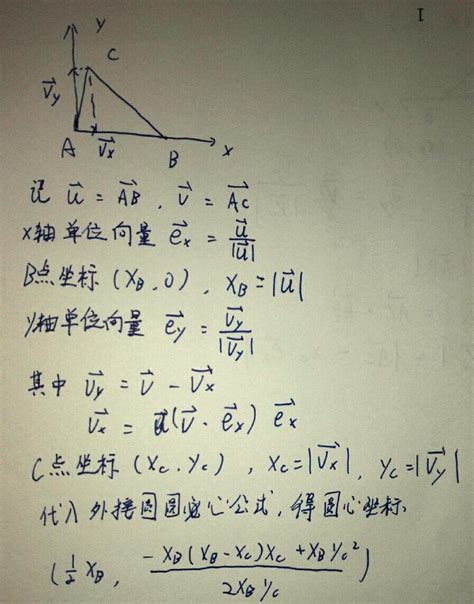 I
y
C
V⃗y
A V⃗x B x
记 u⃗ = AB⃗ , v⃗ = AC⃗
x轴单位向量 e⃗x = u⃗/|u⃗|
B点坐标 (XB, 0) , XB = |u⃗|
y轴单位向量 e⃗y = V⃗y/|V⃗y|
其中 V⃗y = V⃗ - V⃗x
V⃗x = (V⃗ · e⃗x) e⃗x
C点坐标 (Xc, Yc) , Xc = |V⃗x| , Yc = |V⃗y|
代入外接圆圆心公式, 得圆心坐标
(1/2 XB, (-XB(XB-Xc)Xc + XB Yc²)/(2XB Yc))